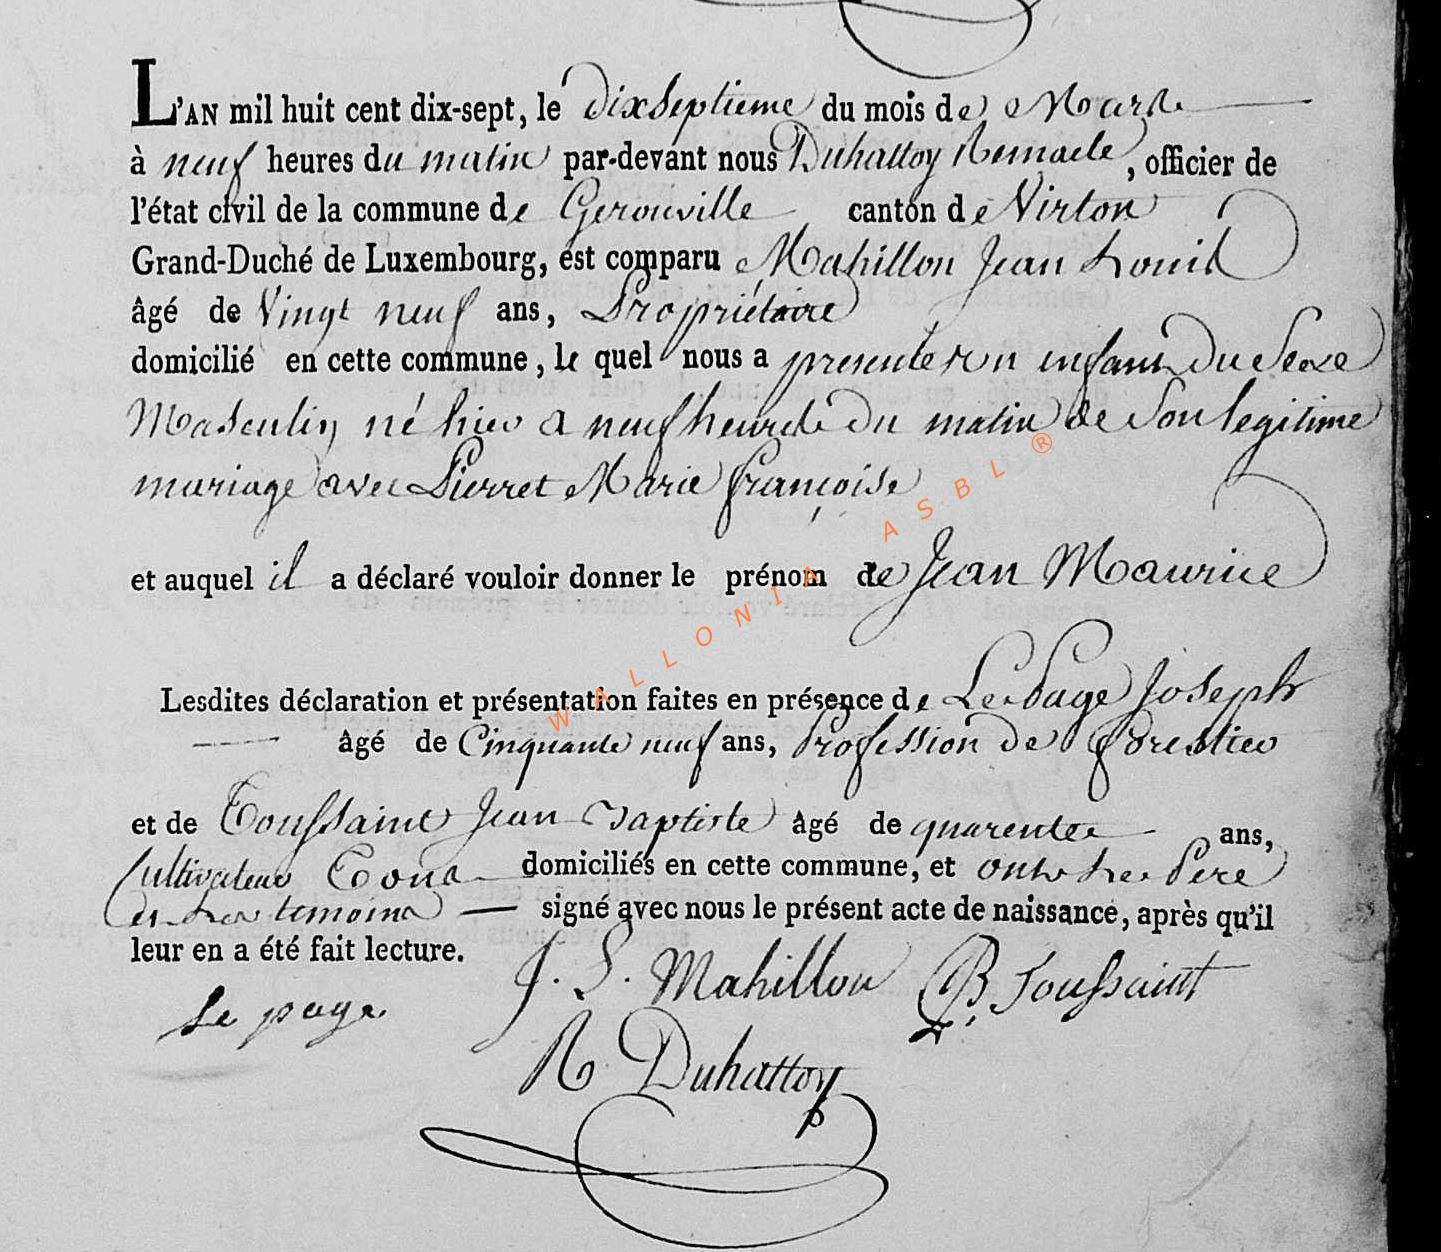 L'AN mil huit cent dix-sept, le dixseptieme du mois de Mars
à neuf heures du matin par-devant nous Duhattoy Remacle, officier de
l'état civil de la commune de Gerouville canton de Virton
Grand-Duché de Luxembourg, est comparu Mahillon Jean Louis
âgé de Vingt neuf ans, Propriétaire
domicilié en cette commune, le quel nous a presente un enfant Du Sexe
Masculin né hier a neuf heures Du matin de Son legitime
mariage avec Pierret Marie françoise
et auquel il a déclaré vouloir donner le prénom de Jean Maurice
Lesdites déclaration et présentation faites en présence de Le Page Joseph
âgé de Cinquante neuf ans, Profession de forestier
et de Toussaint Jean Baptiste âgé de quarente ans,
Cultivateur Tous domiciliés en cette commune, et ont les Pere
et les temoins signé avec nous le présent acte de naissance, après qu'il
leur en a été fait lecture.
J. L. Mahillon JB Toussaint
Le page.
R Duhattoy
WALLONIA ASBL ®